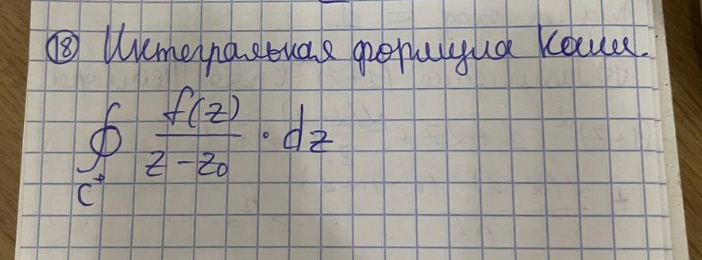 ⑱ Интегральная формула Коши.
∮ f(z)/(z-z₀) · dz
C⁺